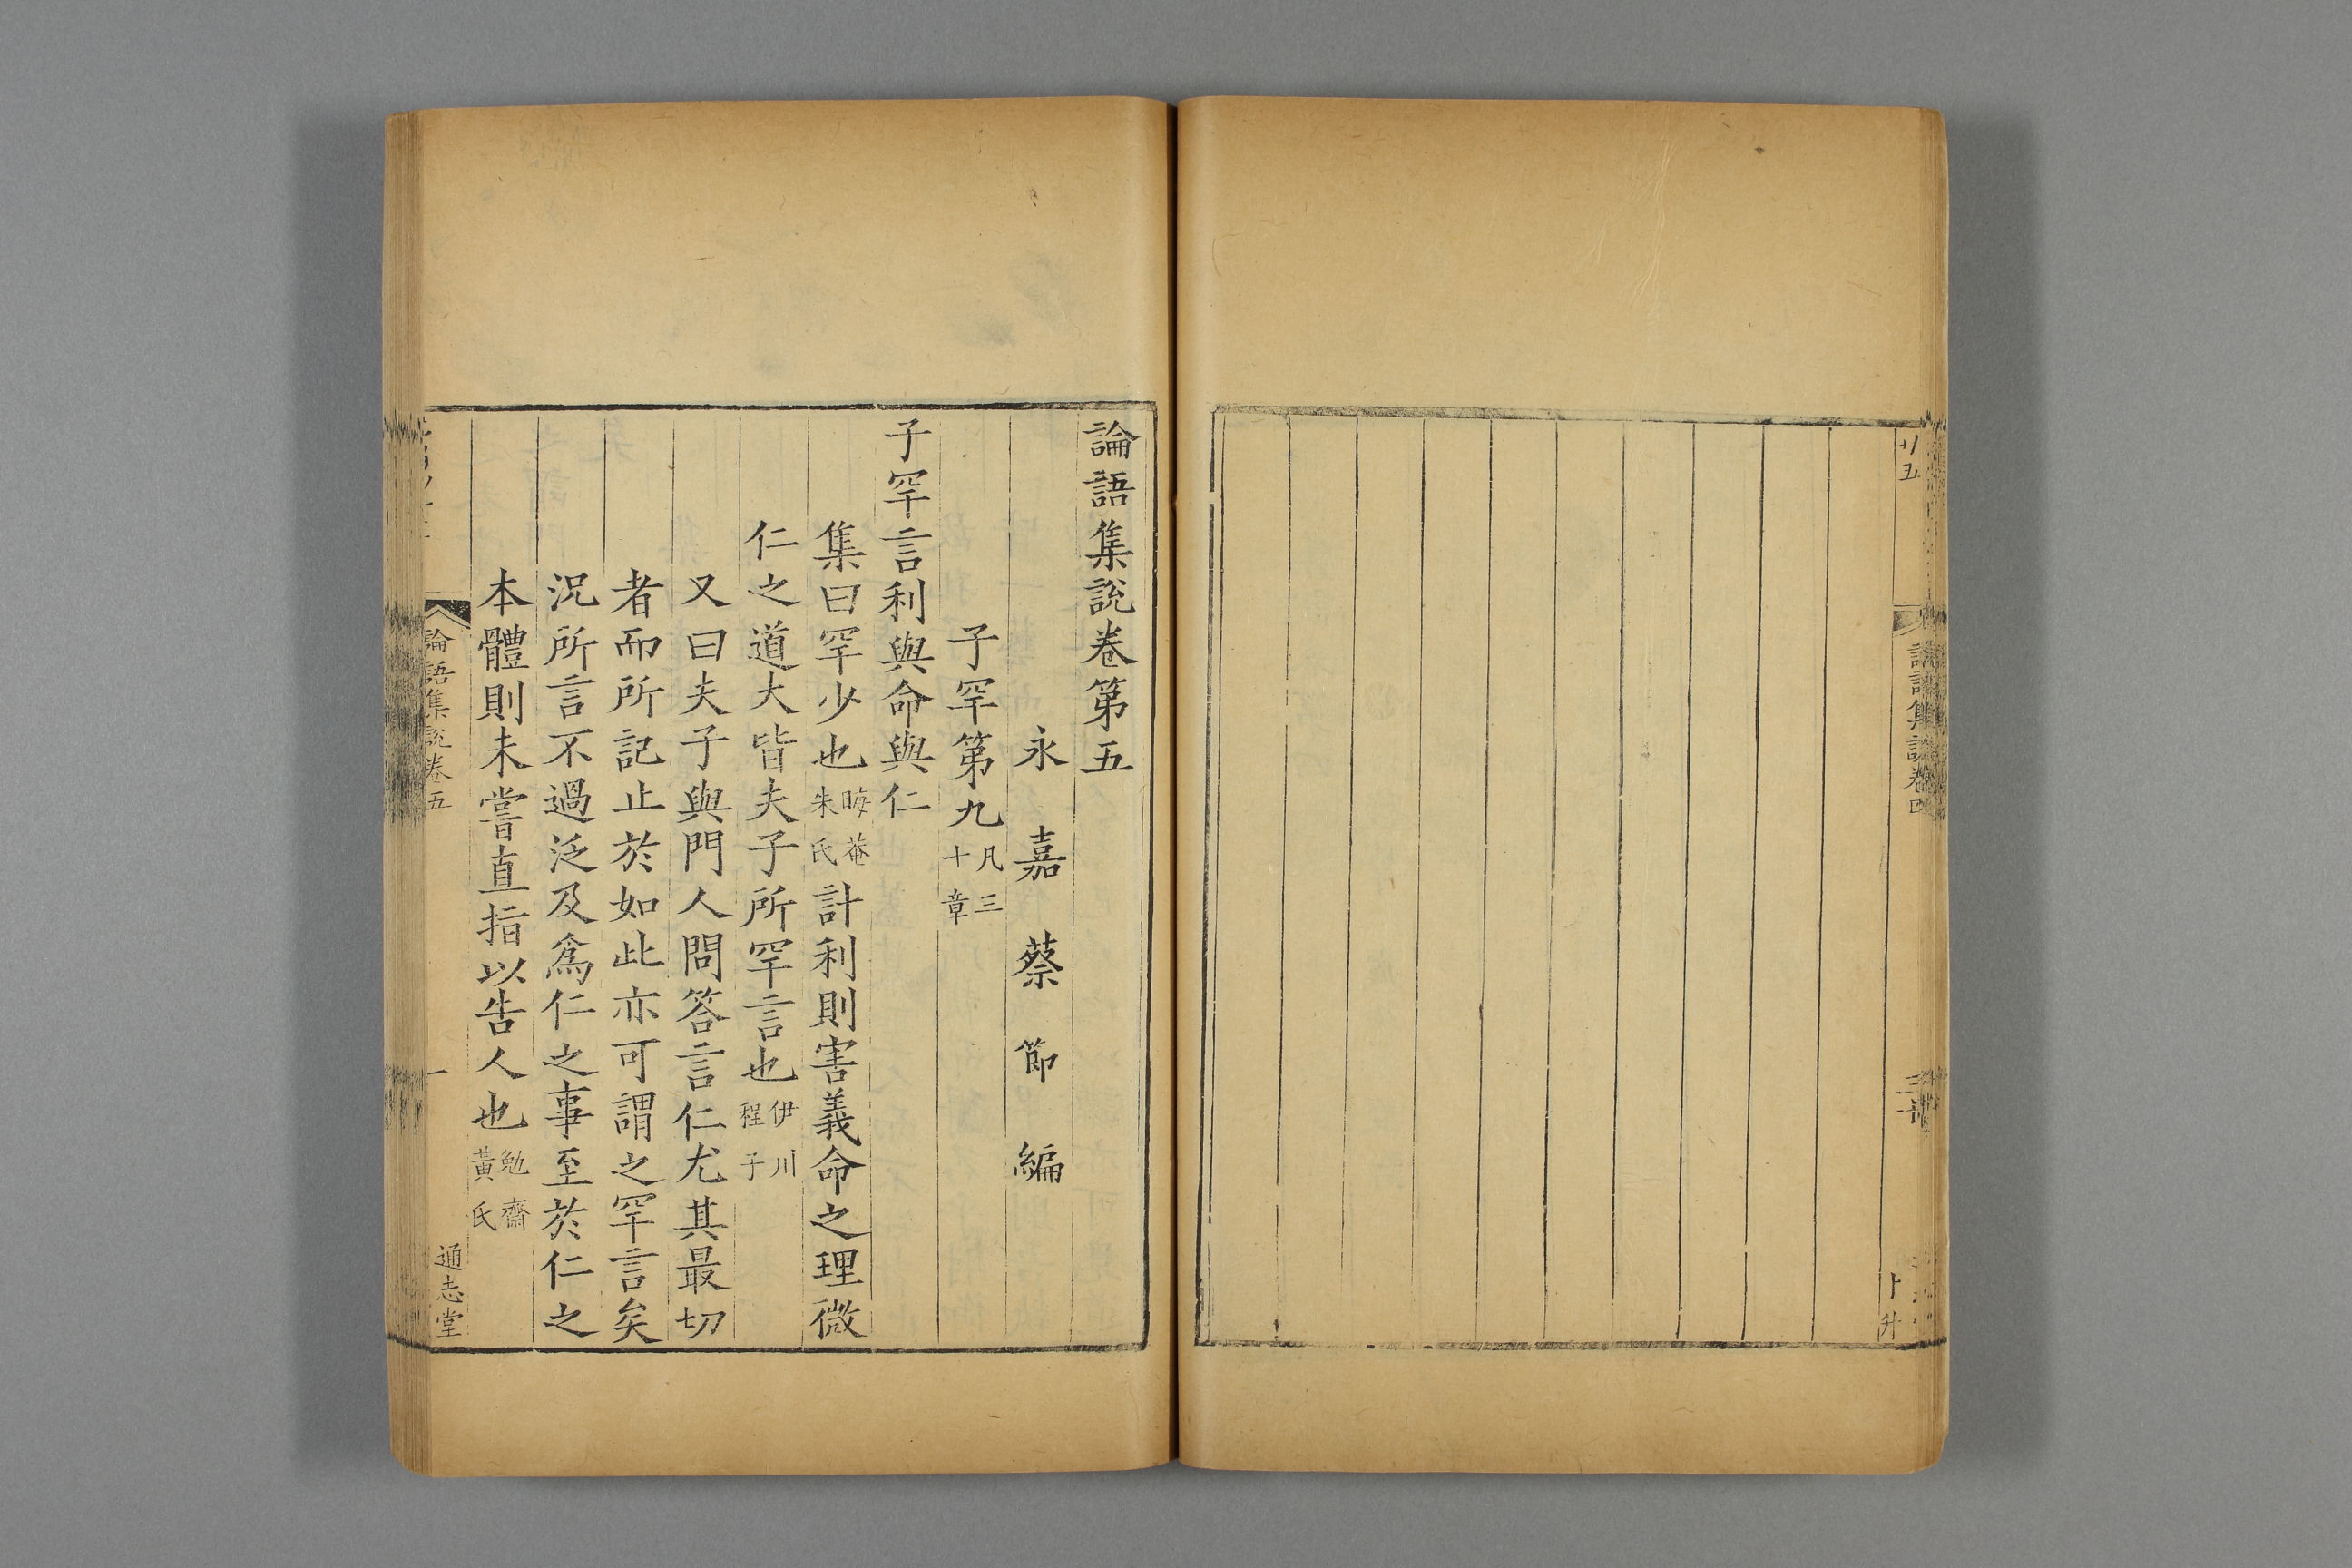 廿五
集說卷四
卜升
論語集說卷第五
永嘉蔡節編
子罕第九凡三十章
子罕言利與命與仁
集曰罕少也晦菴朱氏計利則害義命之理微
仁之道大皆夫子所罕言也伊川程子
又曰夫子與門人問答言仁尤其最切
者而所記止於如此亦可謂之罕言矣
況所言不過泛及爲仁之事至於仁之
本體則未嘗直指以告人也勉齋黃氏
論語集說卷五
一
通志堂